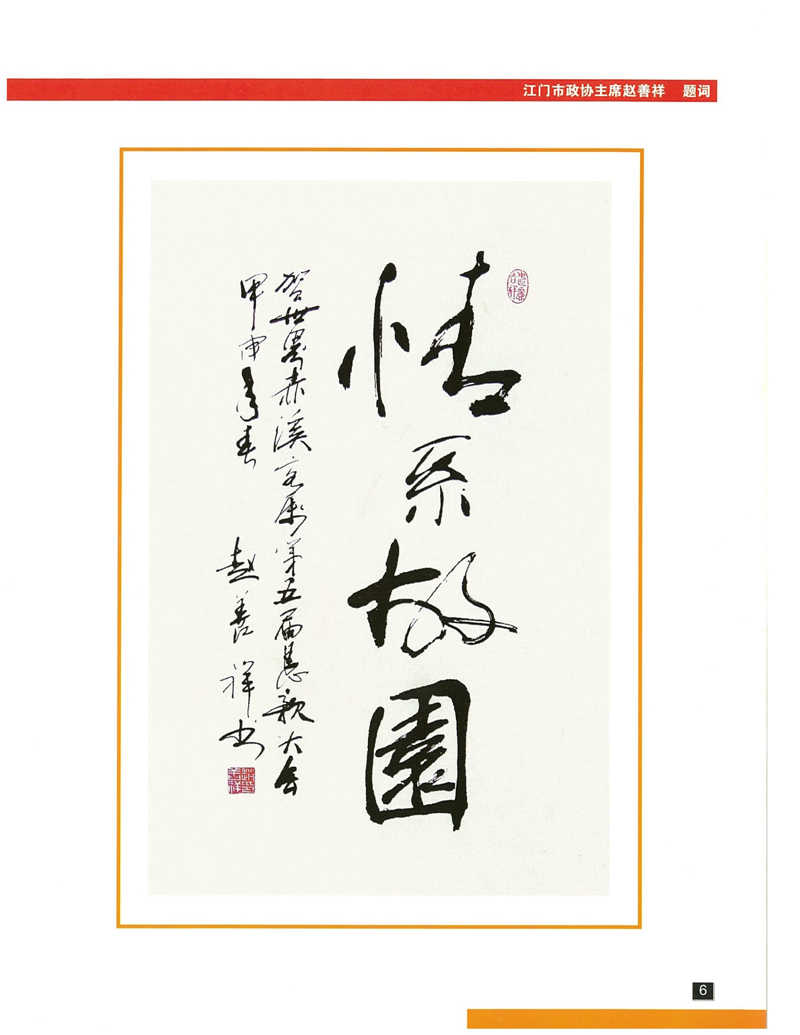 江门市政协主席赵善祥 题词
情系故園
贺世界赤溪客属第五届恳亲大会
甲申年春
赵善祥书
6